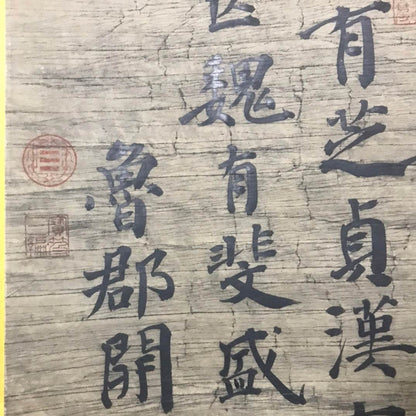 有芝貞漢
魏有斐盛
魯郡開